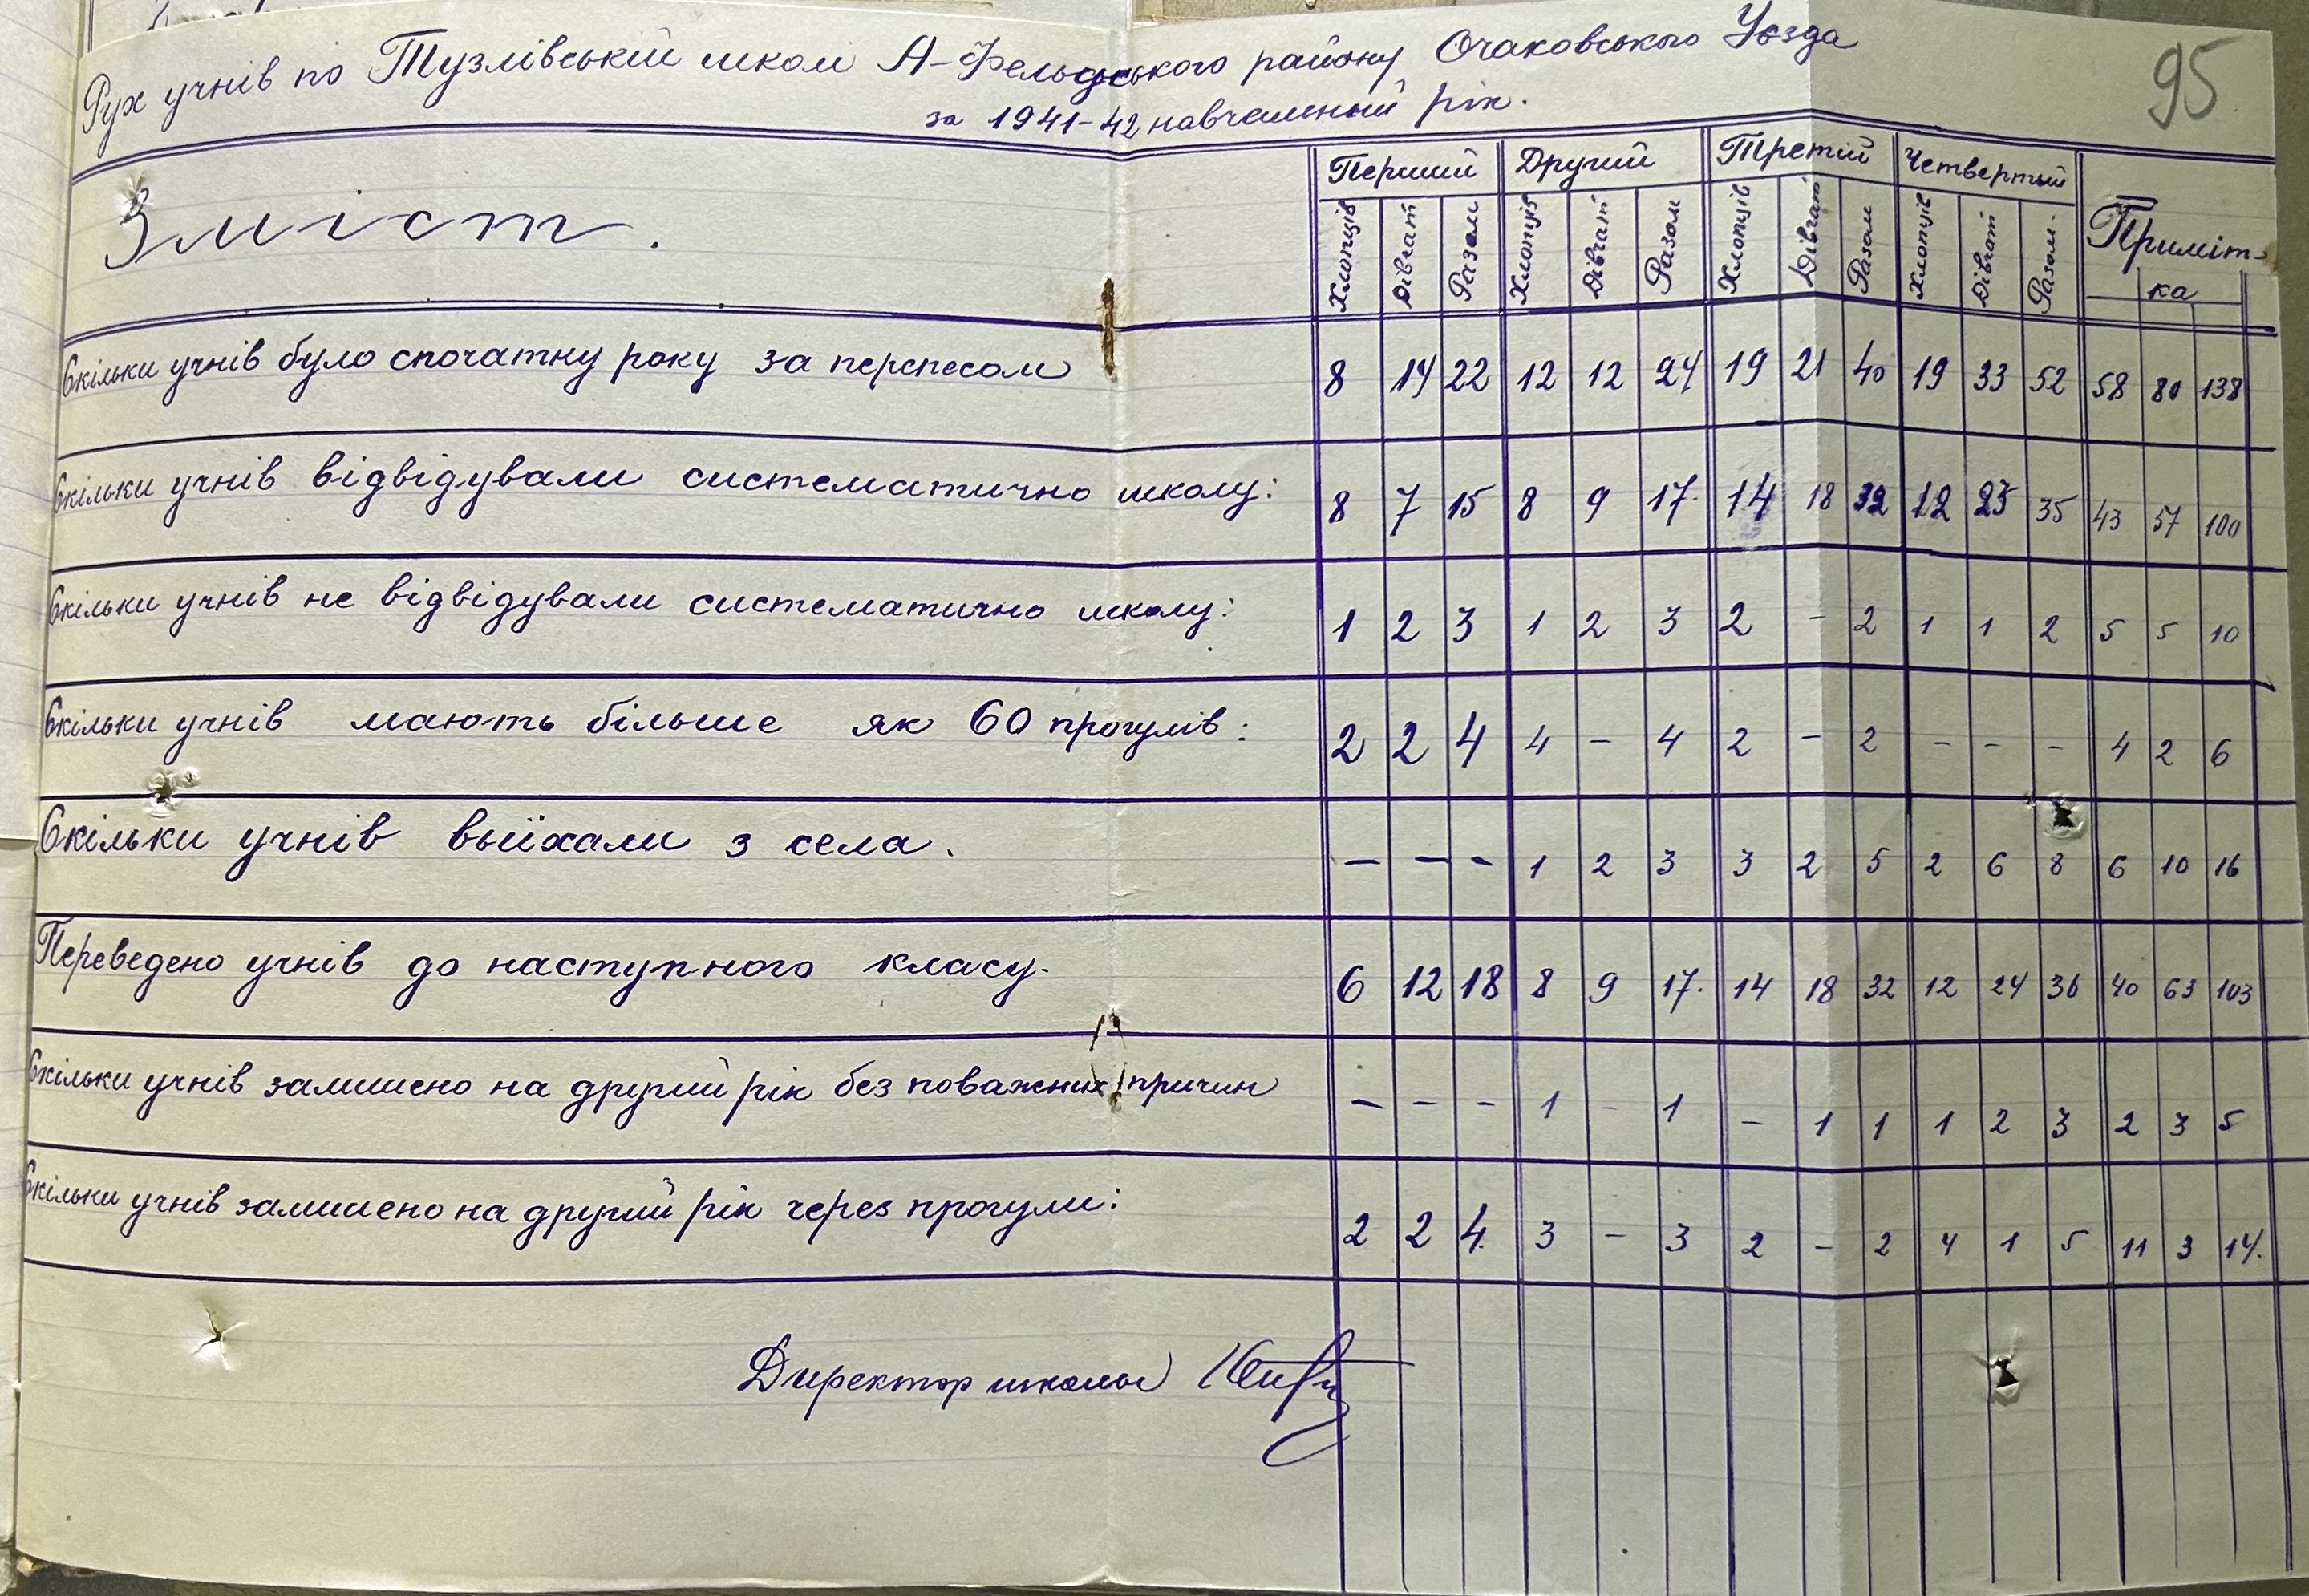 95
Рух учнів по Тузлівській школі А-Фельдського району Очаковського Уєзда
за 1941-42 навчальный рік.
Зміст.
Перший Другий Третій Четвертый Приміт-
ка
Хлопців Дівчат Разом Хлопців Дівчат Разом Хлопців Дівчат Разом Хлопців Дівчат Разом
Скільки учнів було спочатку року за перепесом 8 14 22 12 12 24 19 21 40 19 33 52 58 80 138
Скільки учнів відвідували систематично школу: 8 7 15 8 9 17. 14 18 32 12 23 35 43 57 100
Скільки учнів не відвідували систематично школу: 1 2 3 1 2 3 2 - 2 1 1 2 5 5 10
Скільки учнів мають більше як 60 прогулів: 2 2 4 4 - 4 2 - 2 - - - 4 2 6
Скільки учнів выїхали з села. - - - 1 2 3 3 2 5 2 6 8 6 10 16
Переведено учнів до наступного класу. 6 12 18 8 9 17. 14 18 32 12 24 36 40 63 103
Скільки учнів залишено на другий рік без поважних причин - - - 1 - 1 - 1 1 1 2 3 2 3 5
Скільки учнів залишено на другий рік через прогули: 2 2 4. 3 - 3 2 - 2 4 1 5 11 3 14.
Директор школы